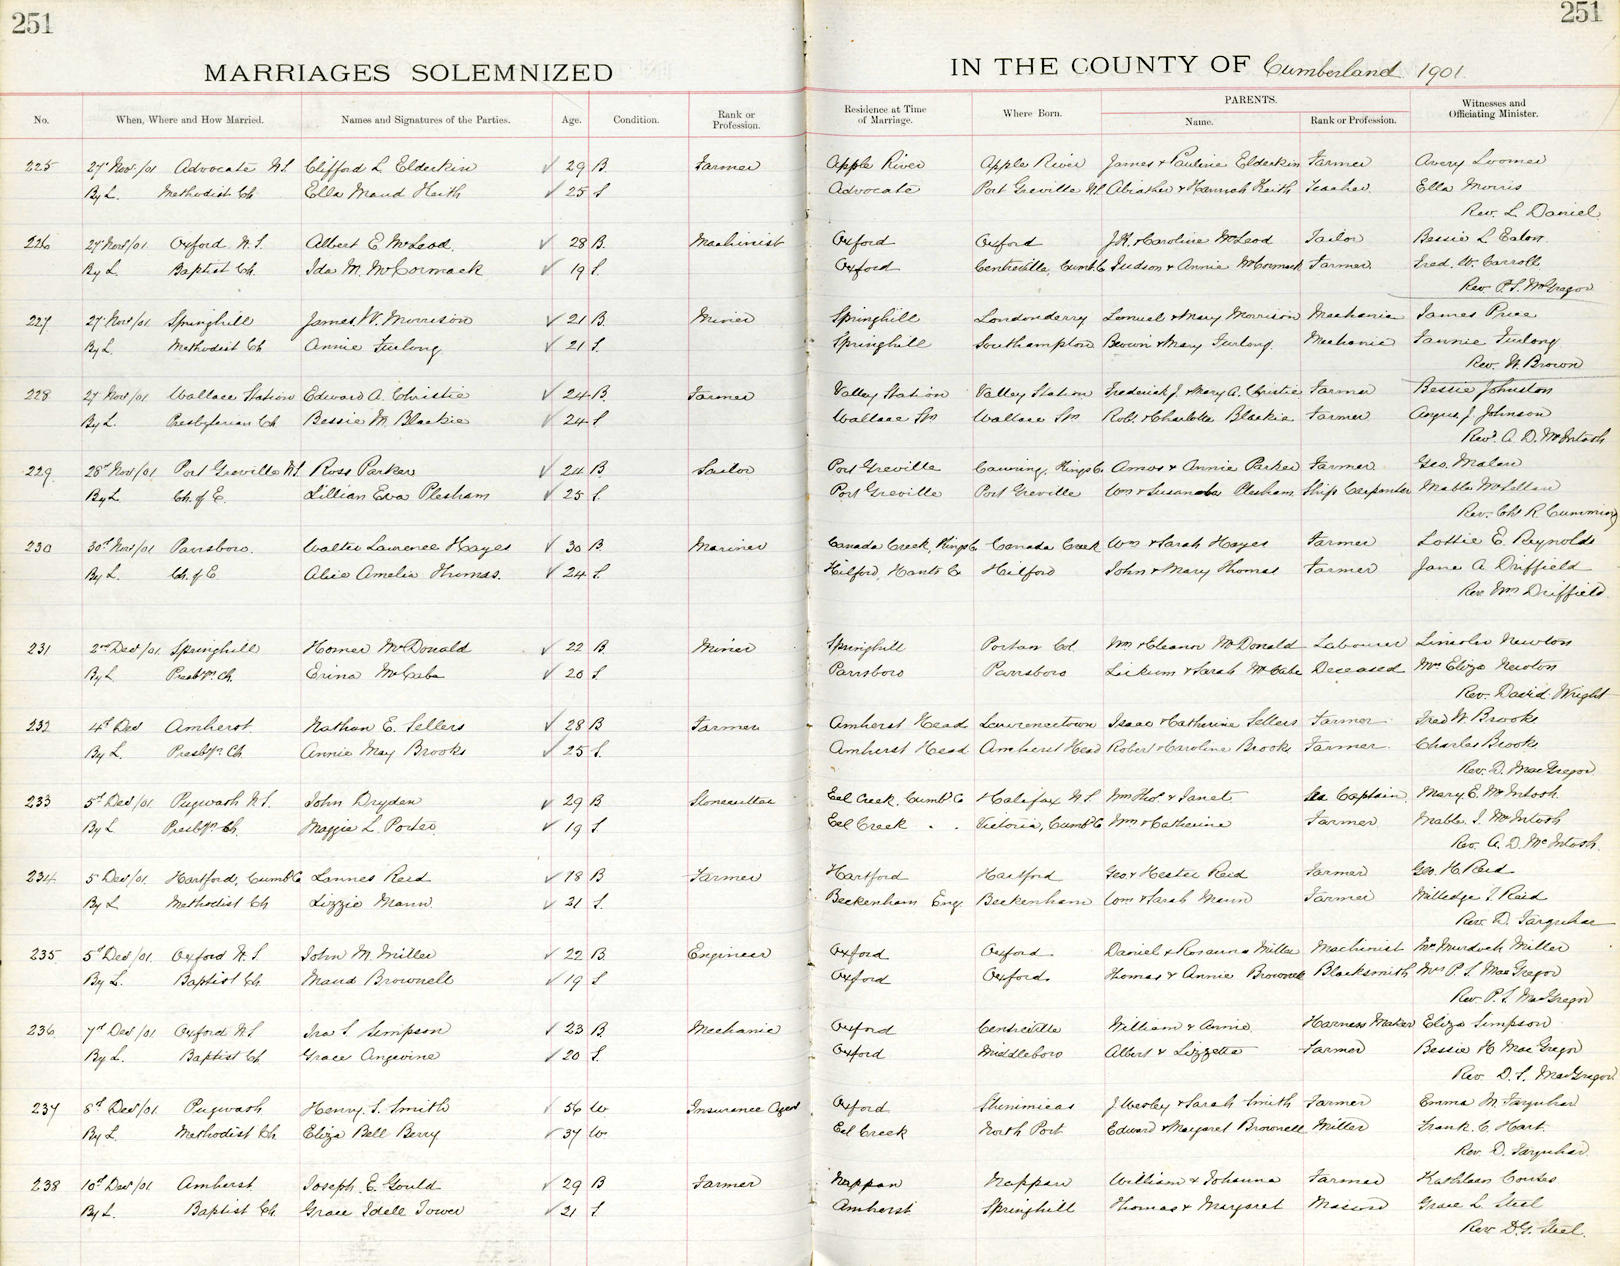 251
251
MARRIAGES SOLEMNIZED IN THE COUNTY OF Cumberland 1901.
No. When, Where and How Married. Names and Signatures of the Parties. Age. Condition. Rank or Profession. Residence at Time of Marriage. Where Born. PARENTS. Name. Rank or Profession. Witnesses and Officiating Minister.
225 27" Nov./01 Advocate N.S. Clifford L Elderkin 29 B. Farmer Apple River Apple River James & Pauline Elderkin Farmer Avery Loomer
By L. Methodist Ch Ella Maud Keith 25 S Advocate Port Greville N.S. & Hannah Keith Teacher. Ella Morris
Rev. L. Daniel
226 27 Nov/01 Oxford N.S. Albert E. McLeod. 28 B. Machinist Oxford Oxford & Caroline McLeod Tailor Bessie L Eaton
By L Baptist Ch. Ida M. McCormack 19 S. Oxford Centreville, Cumb. Co Judson & Annie McCormack Farmer. Fred. W. Carroll
Rev. P.S. McGregor
227 27 Nov/01 Springhill James W. Morrison 21 B. Miner Springhill Londonderry Lemuel & Mary Morrison Mechanic James Price
By L. Methodist Ch Annie Furlong 21 S. Springhill Southampton Brown & Mary Furlong. Mechanic Fannie Furlong
Rev. W. Brown
228 27 Nov/01 Wallace Station Edward A. Christie 24 B. Farmer Valley Station Valley Station Frederick J. & Mary A. Christie Farmer Bessie Johnston
By L. Presbyterian Ch Bessie M. Blackie 24 S Wallace Stn Wallace Stn Robt. & Charlotte Blackie Farmer Angus J. Johnson
Revd. A. D. McIntosh
229. 28" Nov/01 Port Greville N.S. Ross Parker 24 B. Sailor Port Greville Canning, Kings Co Amos & Annie Parker Farmer Geo.
By L Ch. of E. Lillian Eva Plesham 25 S. Port Greville Port Greville Wm & Susan Plesham Ship Carpenter Mable McLellan
Rev. Chs R. Cumming
230 30" Nov/01 Parrsboro. Walter Laurence Hayes 30 B. Mariner Canada Creek, Kings Co Canada Creek Wm & Sarah Hayes Farmer Lottie E. Reynolds
By L. Ch. of E Alice Amelia Thomas. 24 S. Hilford, Hants Co Hilford John & Mary Thomas Farmer Jane A. Driffield
Rev. Wm Driffield
231 2nd Dec/01 Springhill Homer McDonald 22 B. Miner Springhill Wm & Eleanor McDonald Labourer Lincoln Newton
By L Presbyn. Ch. Erina McCabe 20 S Parrsboro Parrsboro & Sarah McCabe Deceased Mrs Eliza Newton
Rev. David Wright
232 4" Dec Amherst. Nathan E. Sellers 28 B Farmer Amherst Head Lawrencetown Isaac & Catherine Sellers Farmer Fred W Brooks
By L. Presbyn. Ch. Annie May Brooks 25 S. Amherst Head Amherst Head Robert & Caroline Brooks Farmer Charles Brooks
Rev. D. MacGregor
233 5" Dec/01. Pugwash N.S. John Dryden 29 B Stonecutter Eel Creek, Cumb. Co Halifax N.S. Wm Thos. & Janet Sea Captain Mary E. McIntosh
By L Presbyn. Ch. Maggie L. Porter 19 S. Eel Creek " " Victoria, Cumb. Co Wm & Catherine Farmer Mable I. McIntosh
Rev. A. D. McIntosh.
234. 5 Dec/01. Hartford, Cumb. Co Lannes Reid 18 B Farmer Hartford Hartford Geo & Hester Reid Farmer Geo. H. Reid
By L Methodist Ch Lizzie Mann 21 S. Beckenham Eng. Beckenham Wm & Sarah Mann Farmer Milledge I. Reid
Rev. D. Farquhar
235 5" Dec/01. Oxford N.S. John M. Miller 22 B Engineer Oxford Oxford Daniel & Rosanna Miller Machinist Mrs Murdoch Miller
By L. Baptist Ch. Maud Brownell 19 S Oxford Oxford. Thomas & Annie Brownell Blacksmith Mrs P. S. MacGregor
Rev. P.S. MacGregor
236 7" Dec/01 Oxford N.S Ira S. Simpson 23 B. Mechanic Oxford Centreville William & Annie. Harness Maker Eliza Simpson
By L. Baptist Ch Grace Angevine 20 S. Oxford Middleboro Albert & Lizzetta Farmer Bessie H. MacGregor
Rev. P. S. MacGregor
237 8" Dec/01. Pugwash Henry S. Smith 56 W Insurance Agent Oxford Shinimicas J Wesley & Sarah Smith Farmer Emma M. Farquhar
By L. Methodist Ch. Eliza Bell Berry 37 W. Eel Creek North Port Edward & Margaret Brownell Miller Frank. C. Hart.
Rev. D. Farquhar.
238 10" Dec/01 Amherst Joseph E. Gould 29 B Farmer Nappan Nappan William & Johanna Farmer Kathleen Coates
By L. Baptist Ch. Grace Idell Tower 21 S. Amherst Springhill Thomas & Margaret Mason Grace L. Steel
Rev D.G. Steel.